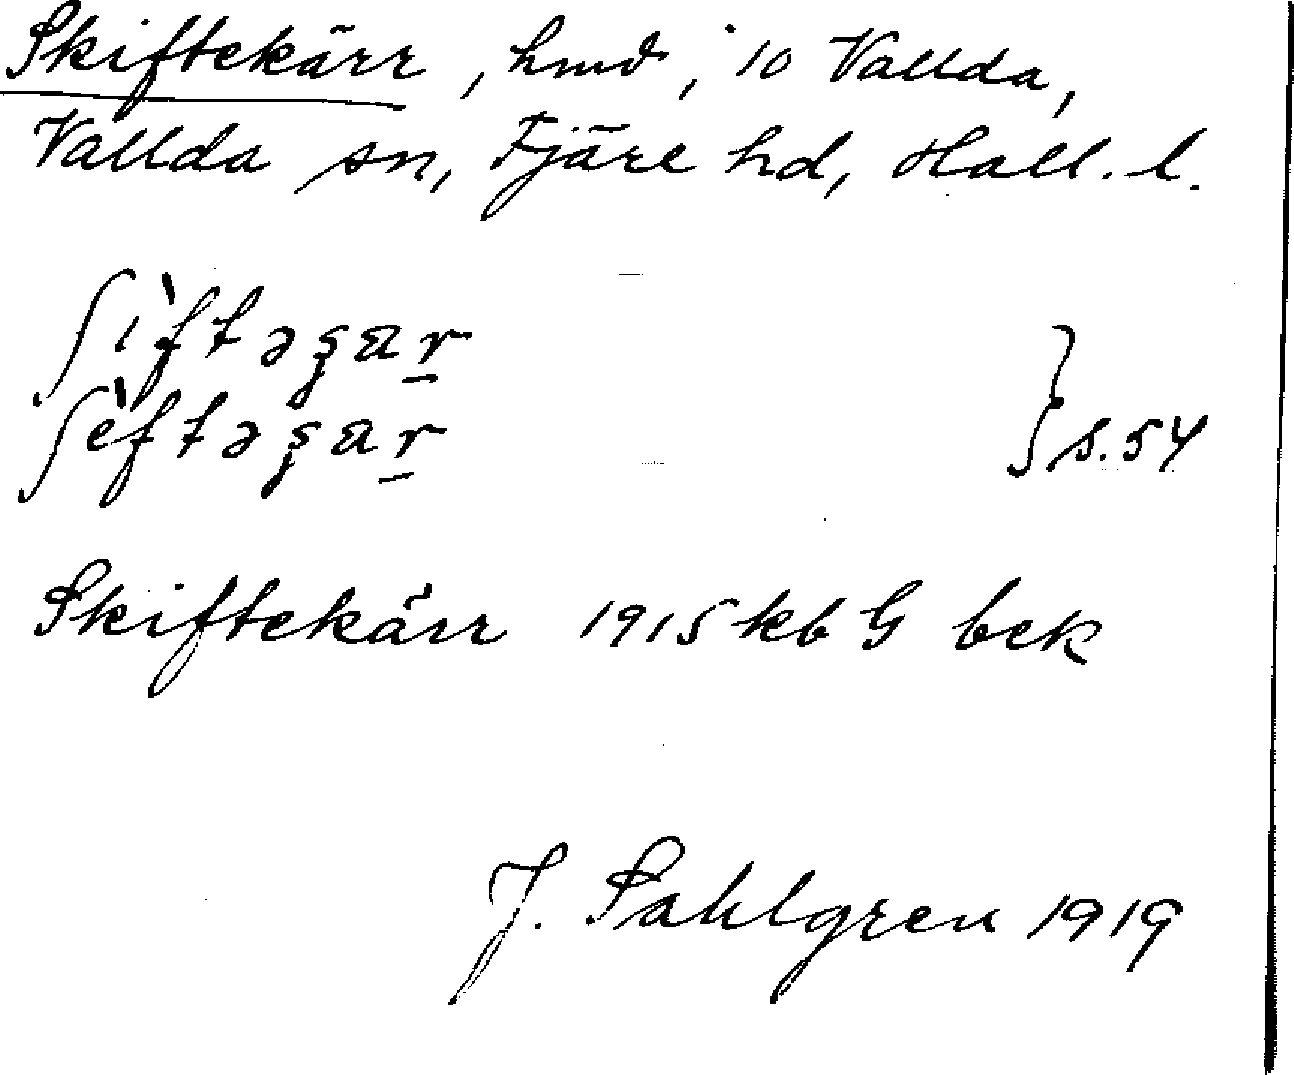 Skiftekärr, hmd, 10 Vallda,
Vallda sn, Fjäre hd, Hall. l.
ʃìftəʂar
ʃèftəʂar } s. 54
Skiftekärr 1915 kb G bek
J. Sahlgren 1919